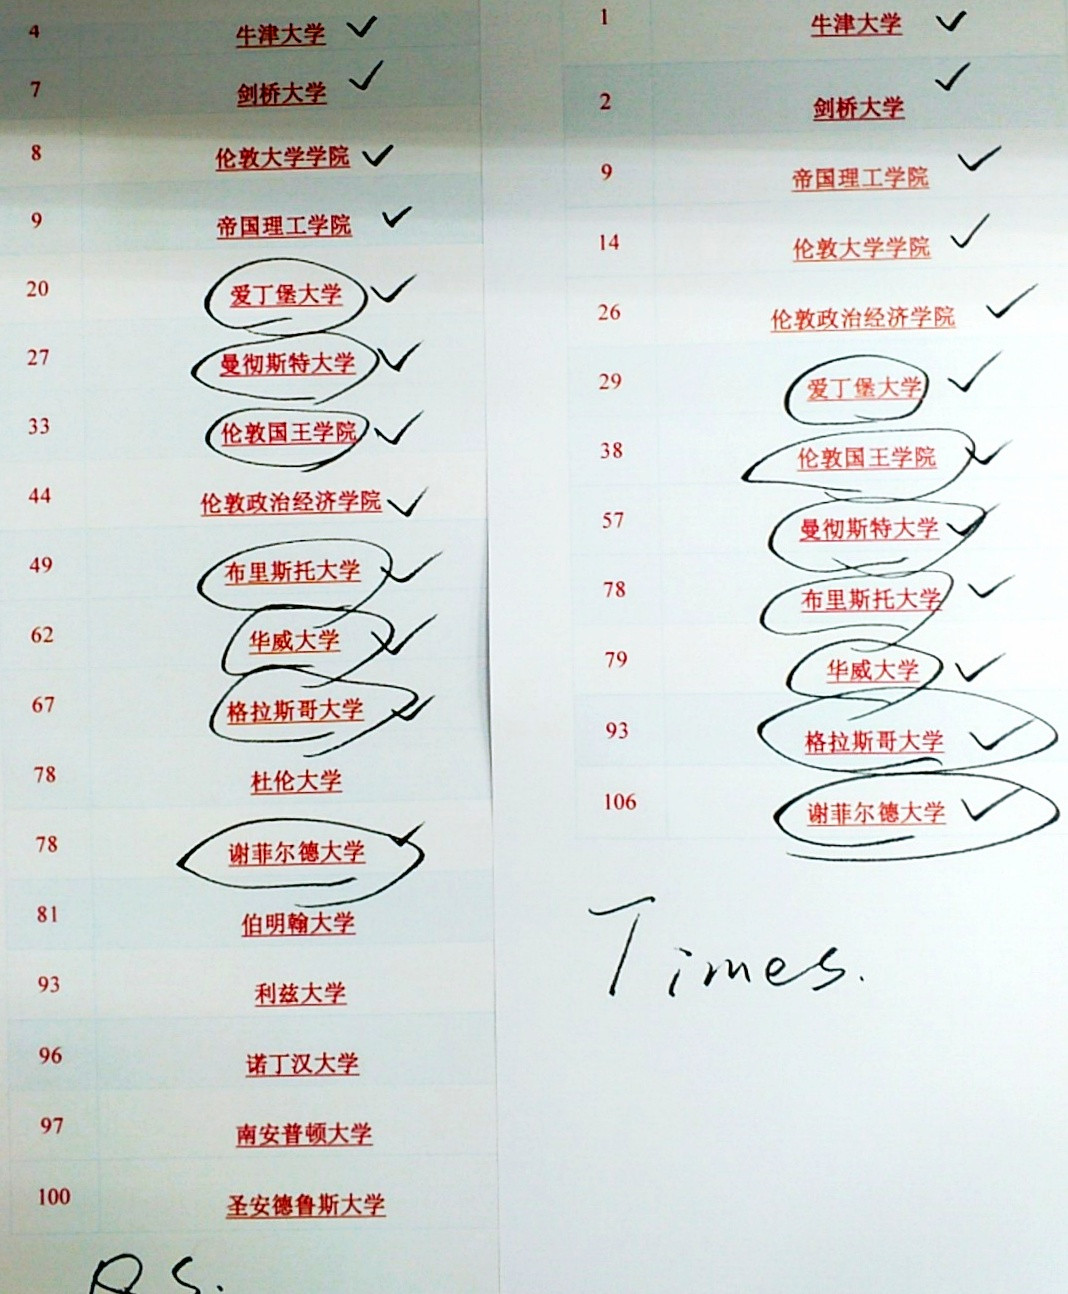 4 牛津大学
7 剑桥大学
8 伦敦大学学院
9 帝国理工学院
20 爱丁堡大学
27 曼彻斯特大学
33 伦敦国王学院
44 伦敦政治经济学院
49 布里斯托大学
62 华威大学
67 格拉斯哥大学
78 杜伦大学
78 谢菲尔德大学
81 伯明翰大学
93 利兹大学
96 诺丁汉大学
97 南安普顿大学
100 圣安德鲁斯大学
QS.
1 牛津大学
2 剑桥大学
9 帝国理工学院
14 伦敦大学学院
26 伦敦政治经济学院
29 爱丁堡大学
38 伦敦国王学院
57 曼彻斯特大学
78 布里斯托大学
79 华威大学
93 格拉斯哥大学
106 谢菲尔德大学
Times.